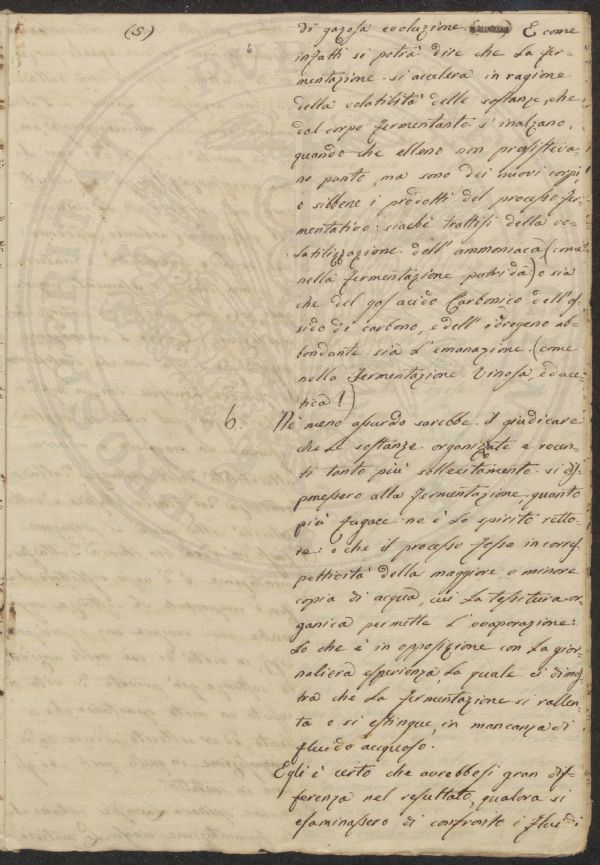 (5)
di gazosa evoluzione. E come
infatti si potrà dire che la fer-
mentazione si accelera in ragione
della volatilità delle sostanze, che
dal corpo fermentante s'inalzano,
quando che elleno non presisteva-
no punto, ma sono dei nuovi corpi
o sibbene i prodotti del processo fer-
mentativo: siachè trattisi della vo-
latilizzazione dell'ammoniaca (come
nella fermentazione putrida) o sia
che del gas acido Carbonico dell'os-
sido di carbono, e dell'idrogeno ab-
bondante sia l'emanazione (come
nella fermentazione Vinosa, ed ace-
tica!)
6. Nè meno assurdo sarebbe il giudicare
che le sostanze organizzate e recen-
ti tanto più sollecitamente si dis-
ponessero alla fermentazione quanto
più fugace ne è lo spirito retto-
re: o che il processo fosse in corres-
pettività della maggiore o minore
copia di acqua, cui la tessitura or-
ganica permette l'evaporazione:
Lo che è in opposizione con la gior-
naliera esperienza, la quale ci dimos-
tra che la fermentazione si rallen-
ta o si estingue, in mancanza di
fluido acquoso.
Egli è certo che avrebbesi gran dif-
ferenza nel resultato, qualora si
esaminassero di confronto i fluidi